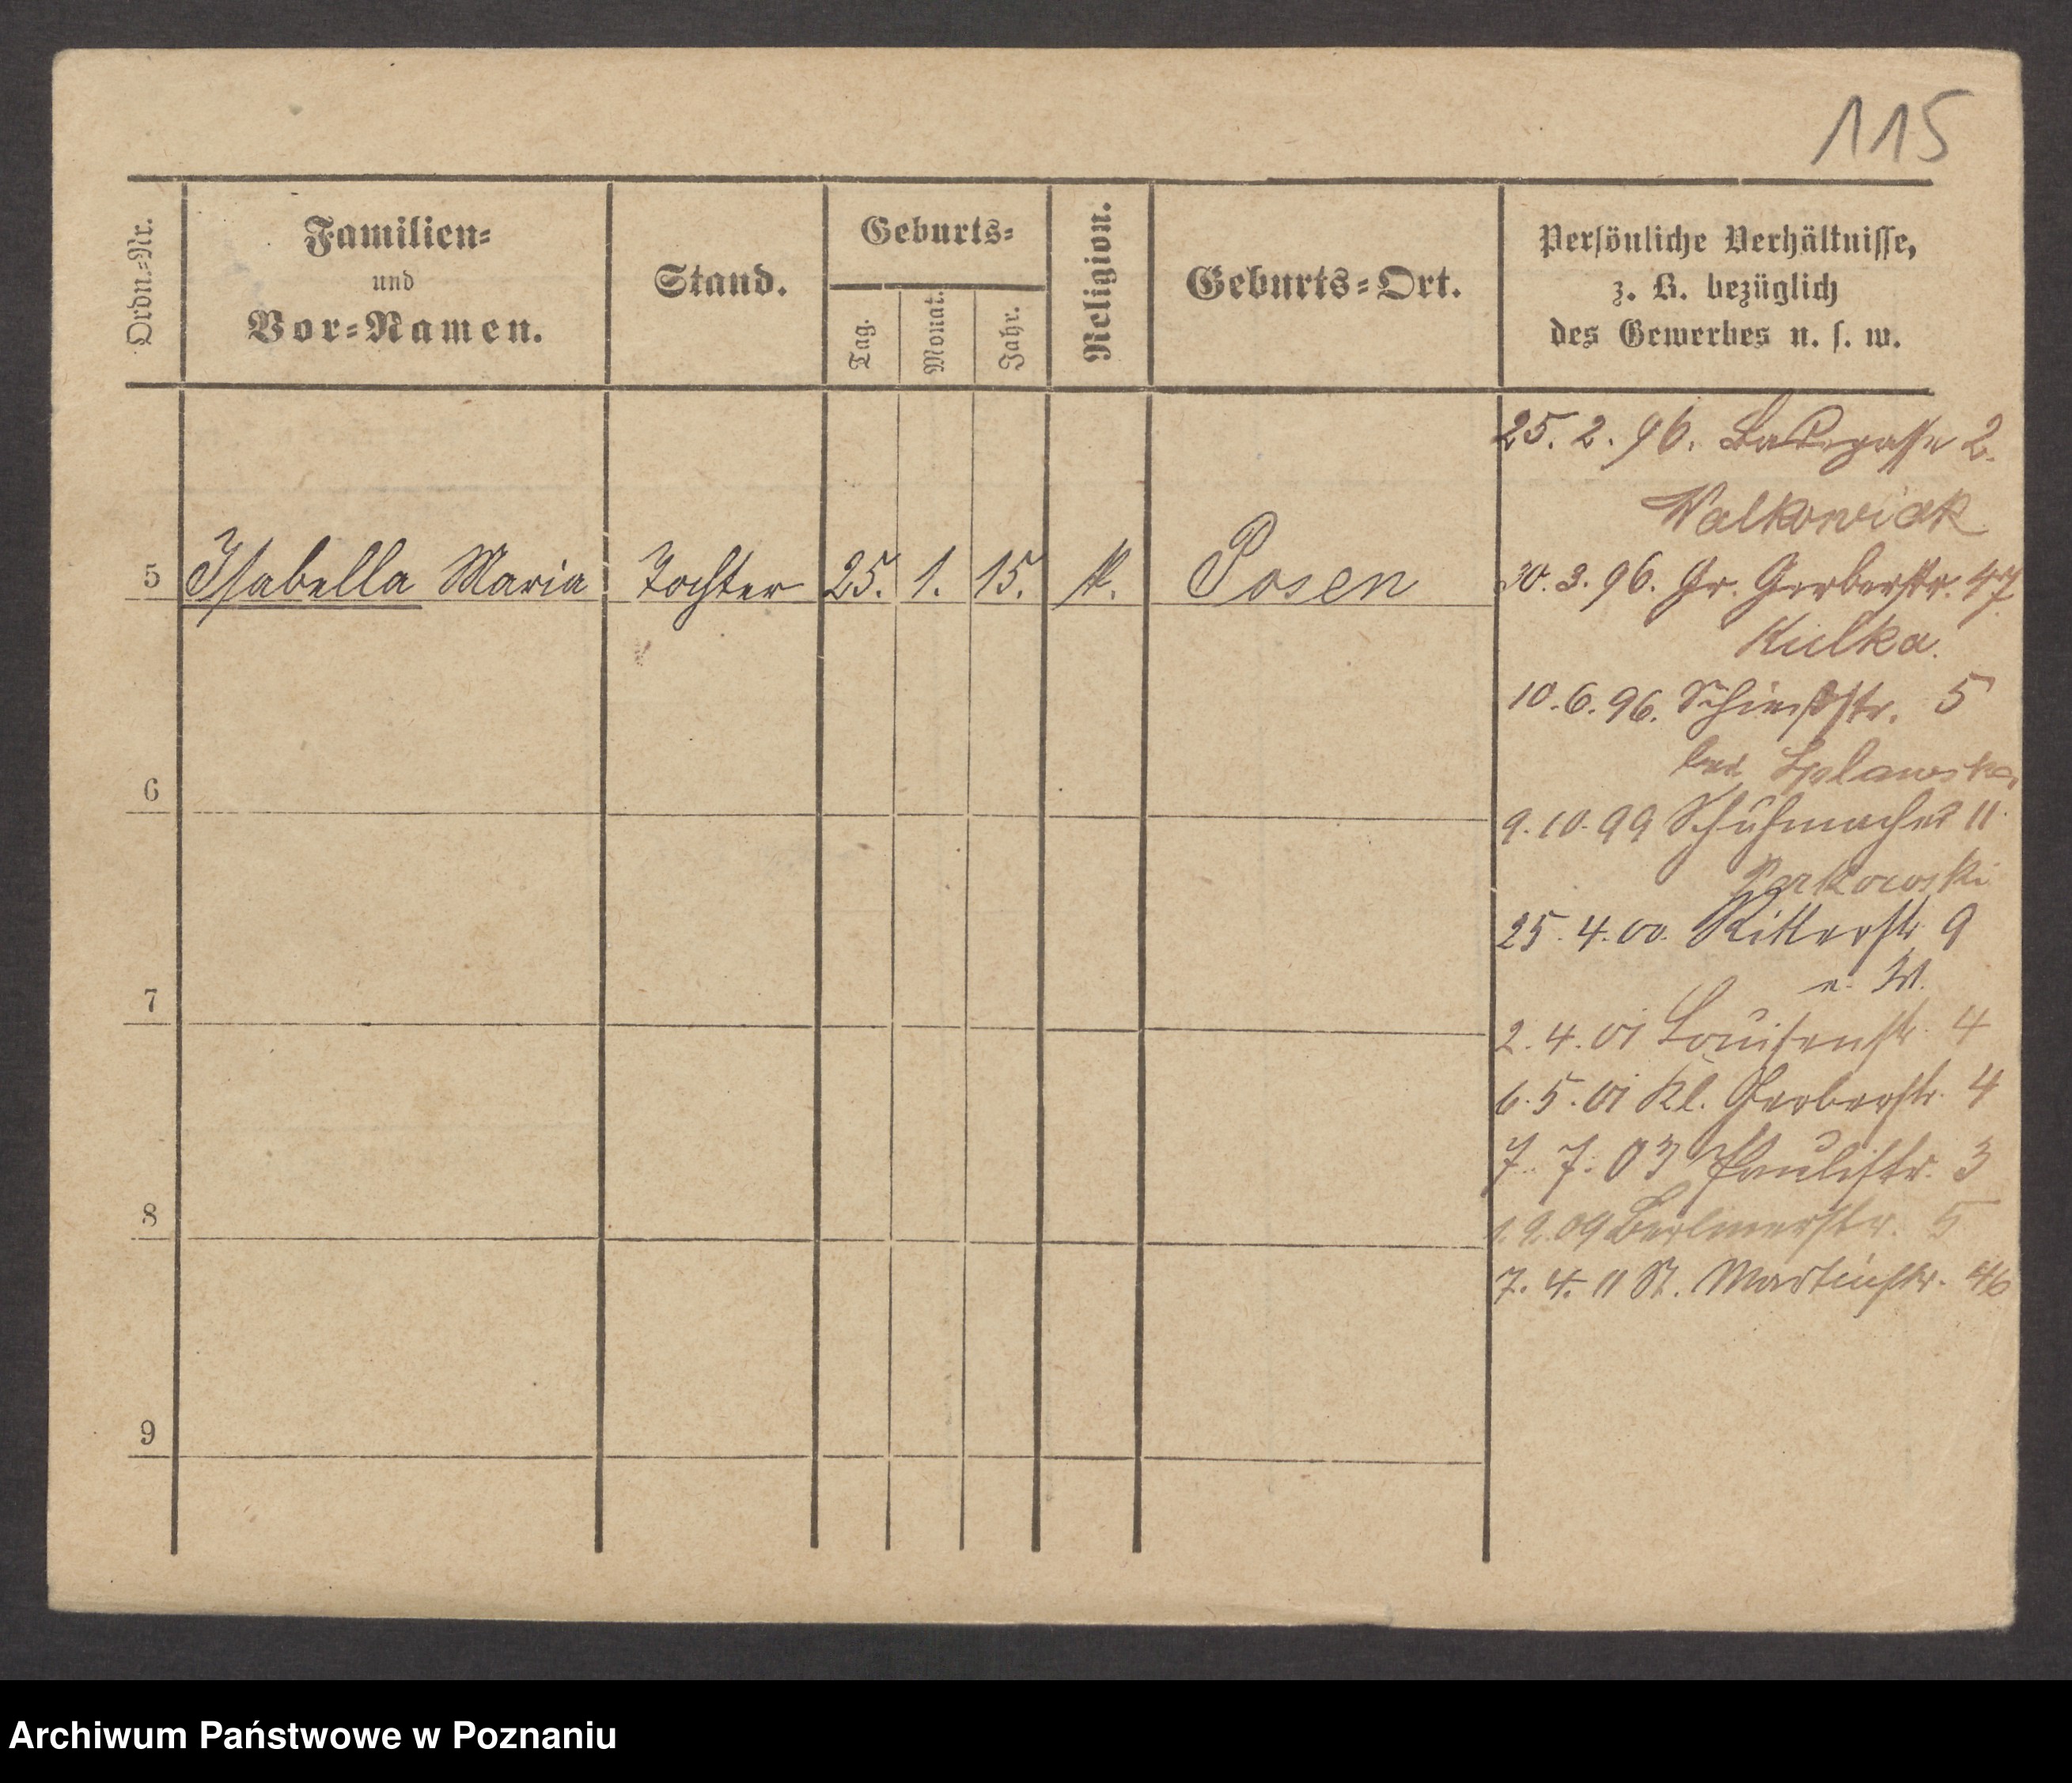 115
Ordn.=Nr.
Familien=
und
Vor=Namen.
Stand.
Geburts=
Tag.
Monat.
Jahr.
Religion.
Geburts=Ort.
Persönliche Verhältnisse,
z. B. bezüglich
des Gewerbes u. s. w.
25. 2. 96. 2.
Walkowiak
5 Isabella Maria Tochter 25. 1. 15. k. Posen
30. 3. 96. Gr. Gerberstr. 47
Kulka.
10. 6. 96. Schießstr. 5
bei
6
9. 10. 99 Schuhmacher 11.
25. 4. 00. Ritterstr 9
7
2. 4. 01 Louisenstr. 4
6. 5. 01 Kl. Gerberstr. 4
7. 7. 03 Paulistr. 3
8
1. 9. 09 Berlinerstr. 5
7. 4. 11 St. Martinstr. 46
9
Archiwum Państwowe w Poznaniu